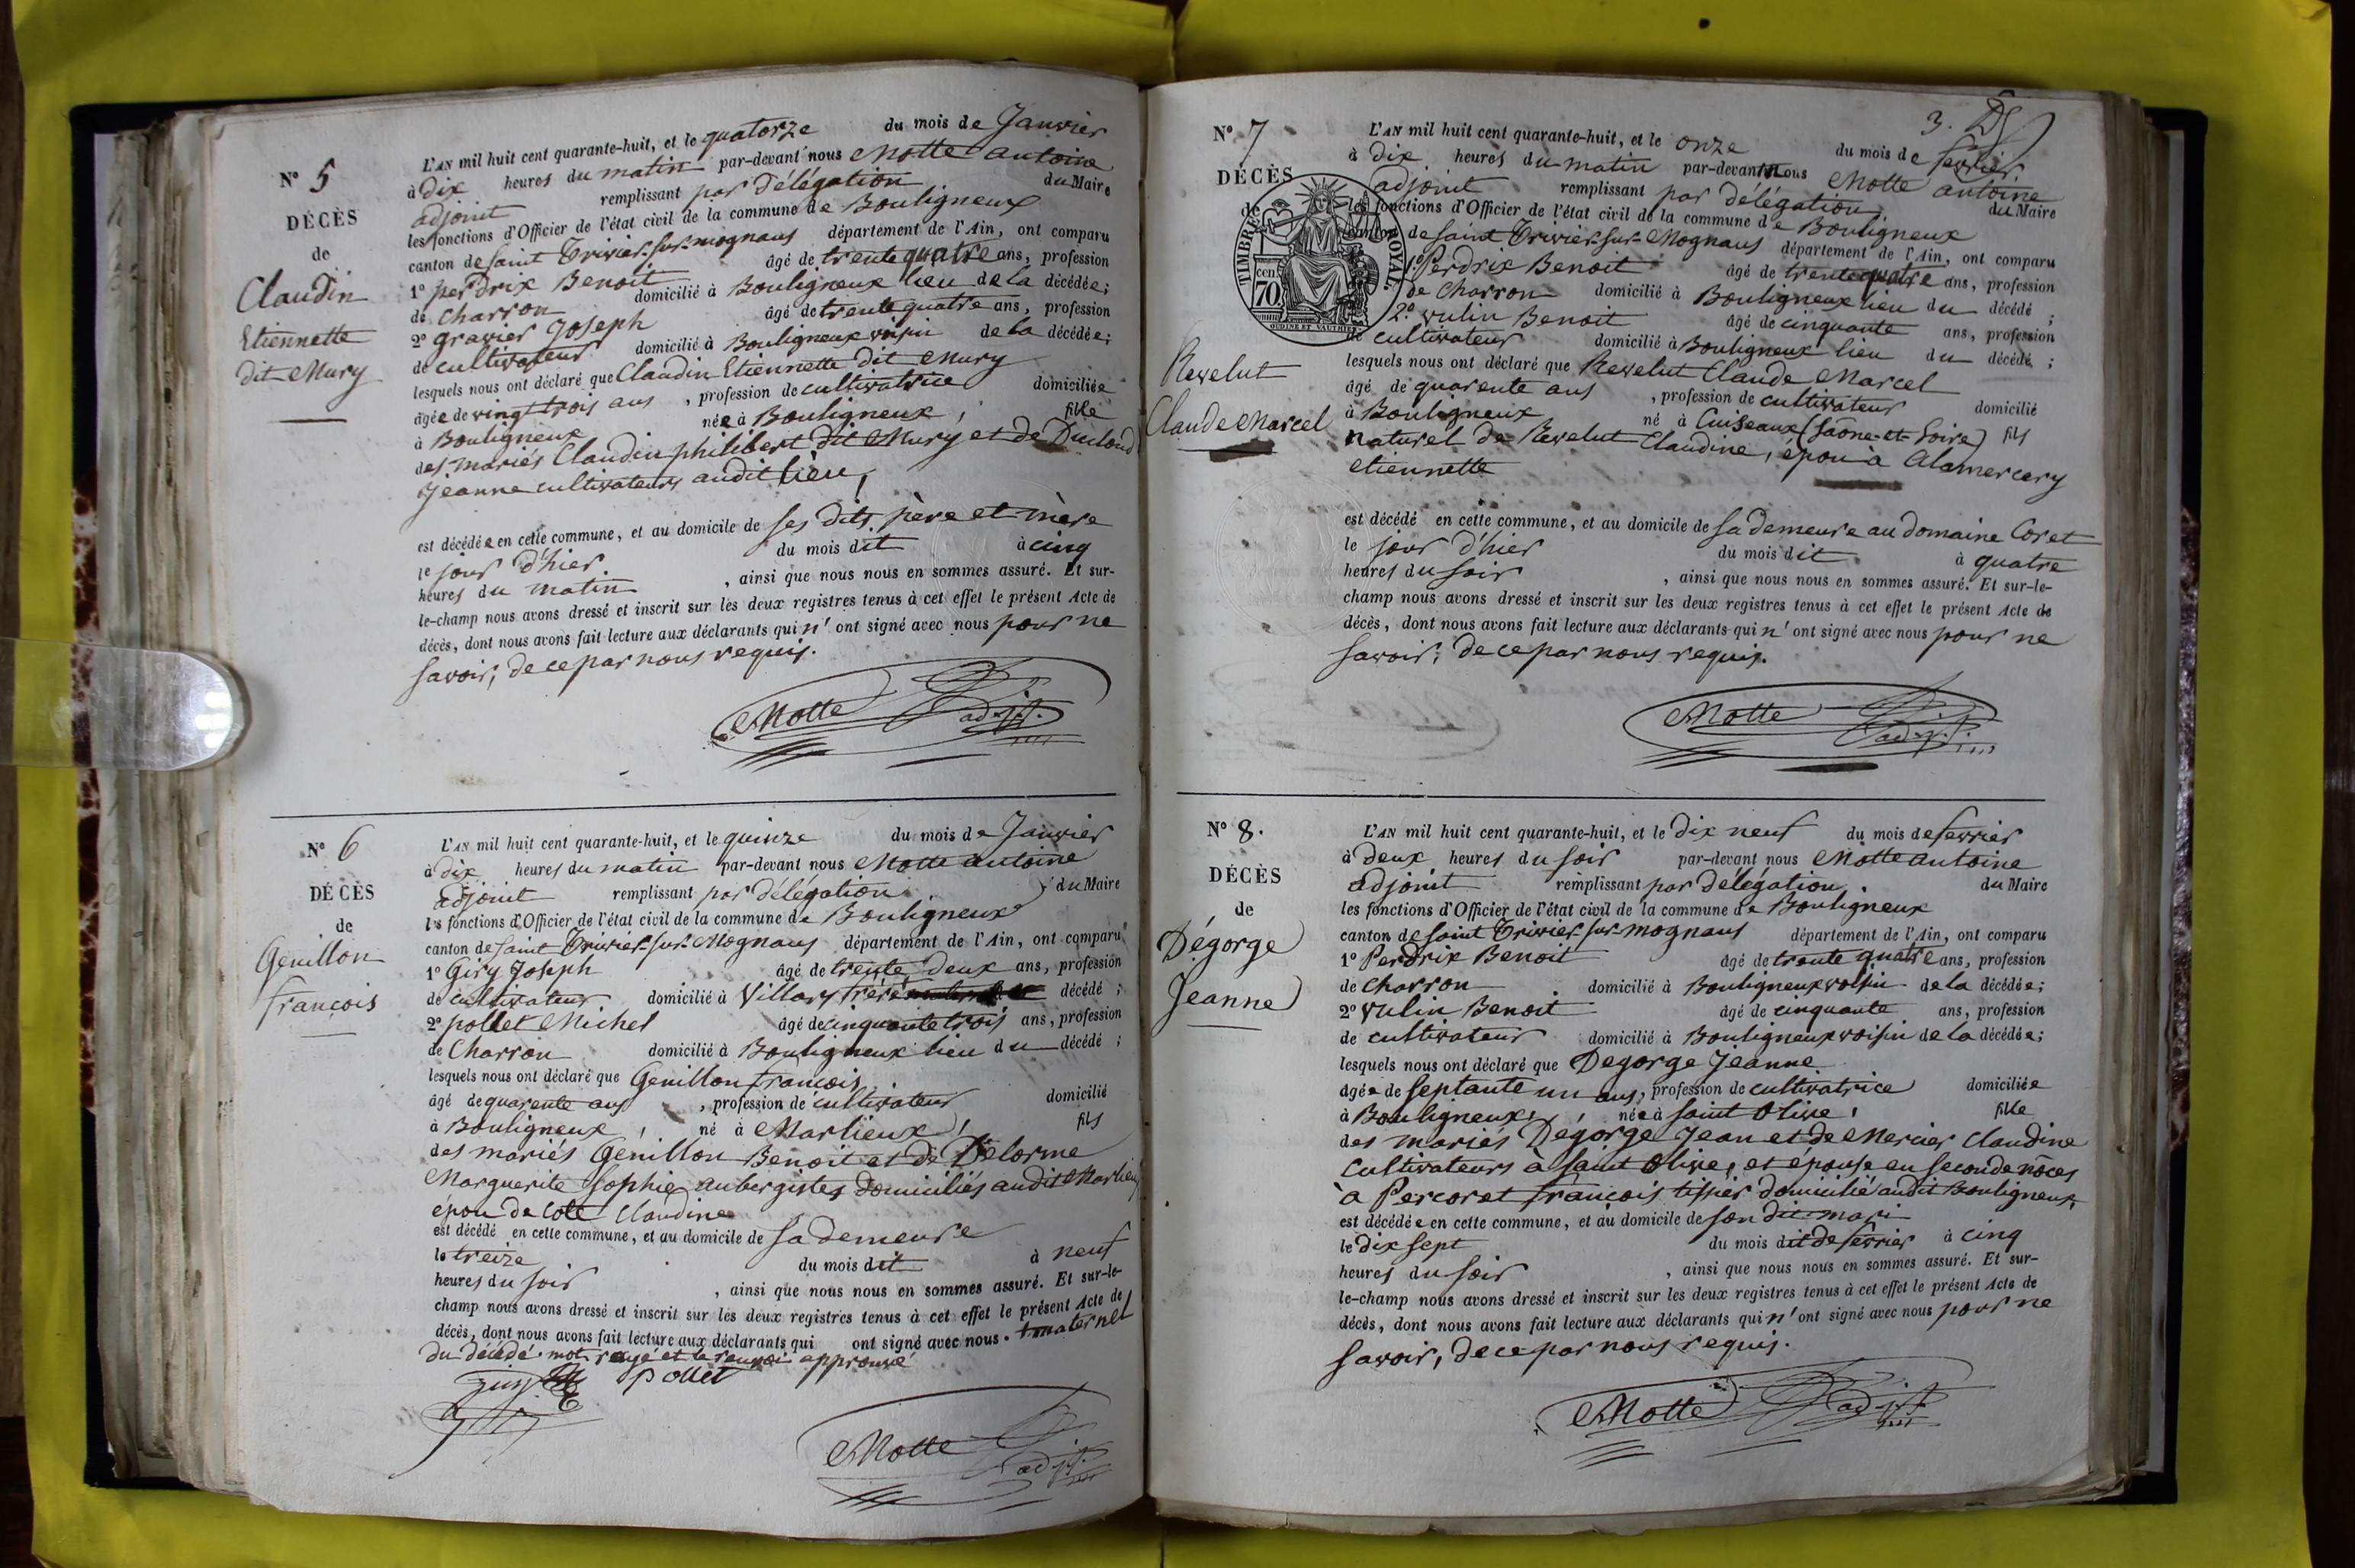 N° 5
DÉCÈS
de
Claudin
Etiennette
dit Mury
L'AN mil huit cent quarante-huit, et le quatorze du mois de Janvier
à dix heures du matin par-devant nous Motte antoine
adjoint remplissant par délégation du Maire
les fonctions d'Officier de l'état civil de la commune de Bouligneux
canton de saint Trivier-sur-mognans département de l'Ain, ont comparu
1° perdrix Benoit âgé de trente quatre ans, profession
de charron domicilié à Bouligneux lieu de la décédée;
2° gravier Joseph âgé de trente quatre ans, profession
de cultivateur domicilié à Bouligneux voisin de la décédée;
lesquels nous ont déclaré que Claudin Etiennette dit Mury
âgée de vingt trois ans, profession de cultivatrice domiciliée
à Bouligneux née à Bouligneux, fille
des mariés Claudin philibert dit Mury et de
Jeanne cultivateurs audit lieu,
est décédée en cette commune, et au domicile de ses dits père et mère
le jour d'hier du mois dit à cinq
heures du matin, ainsi que nous nous en sommes assuré. Et sur-
le-champ nous avons dressé et inscrit sur les deux registres tenus à cet effet le présent Acte de
décès, dont nous avons fait lecture aux déclarants qui n'ont signé avec nous pour ne
savoir, de ce par nous requis.
Motte adj.t
N° 6
DÉCÈS
de
Genillon
françois
L'AN mil huit cent quarante-huit, et le quinze du mois de Janvier
à dix heures du matin par-devant nous Motte antoine
adjoint remplissant par délégation du Maire
les fonctions d'Officier de l'état civil de la commune de Bouligneux
canton de saint Trivier-sur-Mognans département de l'Ain, ont comparu
1° Giry Joseph âgé de trente deux ans, profession
de cultivateur domicilié à Villars frère décédé;
2° pollet Michel âgé de cinquante trois ans, profession
de Charron domicilié à Bouligneux lieu du décédé;
lesquels nous ont déclaré que Genillon françois
âgé de quarente ans, profession de cultivateur domicilié
à Bouligneux, né à Marlieux, fils
des mariés Genillon Benoit et de Delorme
Marguerite Sophie aubergistes domiciliés audit Marlieux
épou de Cote Claudine
est décédé en cette commune, et au domicile de sa demeure
le treize du mois dit à neuf
heures du soir, ainsi que nous nous en sommes assuré. Et sur-le-
champ nous avons dressé et inscrit sur les deux registres tenus à cet effet le présent Acte de
décès, dont nous avons fait lecture aux déclarants qui ont signé avec nous. + maternel
du décédé. mot rayé et le renvoi approuvé
pollet
Motte adj.t
3.
N° 7
DÉCÈS
de
TIMBRE ROYAL.
cen 70
OUDINE ET VAUTHIER
Revelut
Claude Marcel
L'AN mil huit cent quarante-huit, et le onze du mois de fevrier
à dix heures du matin par-devant nous Motte antoine
adjoint remplissant par délégation du Maire
les fonctions d'Officier de l'état civil de la commune de Bouligneux
canton de saint Trivier-sur-Mognans département de l'Ain, ont comparu
1° Perdrix Benoit âgé de trente quatre ans, profession
de Charron domicilié à Bouligneux lieu du décédé;
2° vulin Benoit âgé de cinquante ans, profession
de cultivateur domicilié à Bouligneux lieu du décédé;
lesquels nous ont déclaré que Revelut Claude Marcel
âgé de quarente ans, profession de cultivateur domicilié
à Bouligneux né à Cuiseaux (saône-et-Loire) fils
naturel de Revelut Claudine, épou à Alamercery
etiennette
est décédé en cette commune, et au domicile de sa demeure au domaine Coret
le jour d'hier du mois dit à quatre
heures du soir, ainsi que nous nous en sommes assuré. Et sur-le-
champ nous avons dressé et inscrit sur les deux registres tenus à cet effet le présent Acte de
décès, dont nous avons fait lecture aux déclarants qui n'ont signé avec nous pour ne
savoir, de ce par nous requis.
Motte adj.t
N° 8.
DÉCÈS
de
Dégorge
Jeanne
L'AN mil huit cent quarante-huit, et le dix neuf du mois de fevrier
à deux heures du soir par-devant nous Motte antoine
adjoint remplissant par délégation du Maire
les fonctions d'Officier de l'état civil de la commune de Bouligneux
canton de saint Trivier sur-mognans département de l'Ain, ont comparu
1° Perdrix Benoit âgé de trente quatre ans, profession
de charron domicilié à Bouligneux voisin de la décédée;
2° vulin Benoit âgé de cinquante ans, profession
de cultivateur domicilié à Bouligneux voisin de la décédée;
lesquels nous ont déclaré que Degorge Jeanne
âgée de septante un ans, profession de cultivatrice domiciliée
à Bouligneux, née à saint Olive, fille
des mariés Dégorge Jean et de Mercier Claudine
cultivateurs à saint Olive, et épouse en seconde nôces
à Percoret françois tissier domicilié audit Bouligneux,
est décédée en cette commune, et au domicile de son dit mari
le dix sept du mois dit de février à cinq
heures du soir, ainsi que nous nous en sommes assuré. Et sur-
le-champ nous avons dressé et inscrit sur les deux registres tenus à cet effet le présent Acte de
décès, dont nous avons fait lecture aux déclarants qui n'ont signé avec nous pour ne
savoir, de ce par nous requis.
Motte adj.t